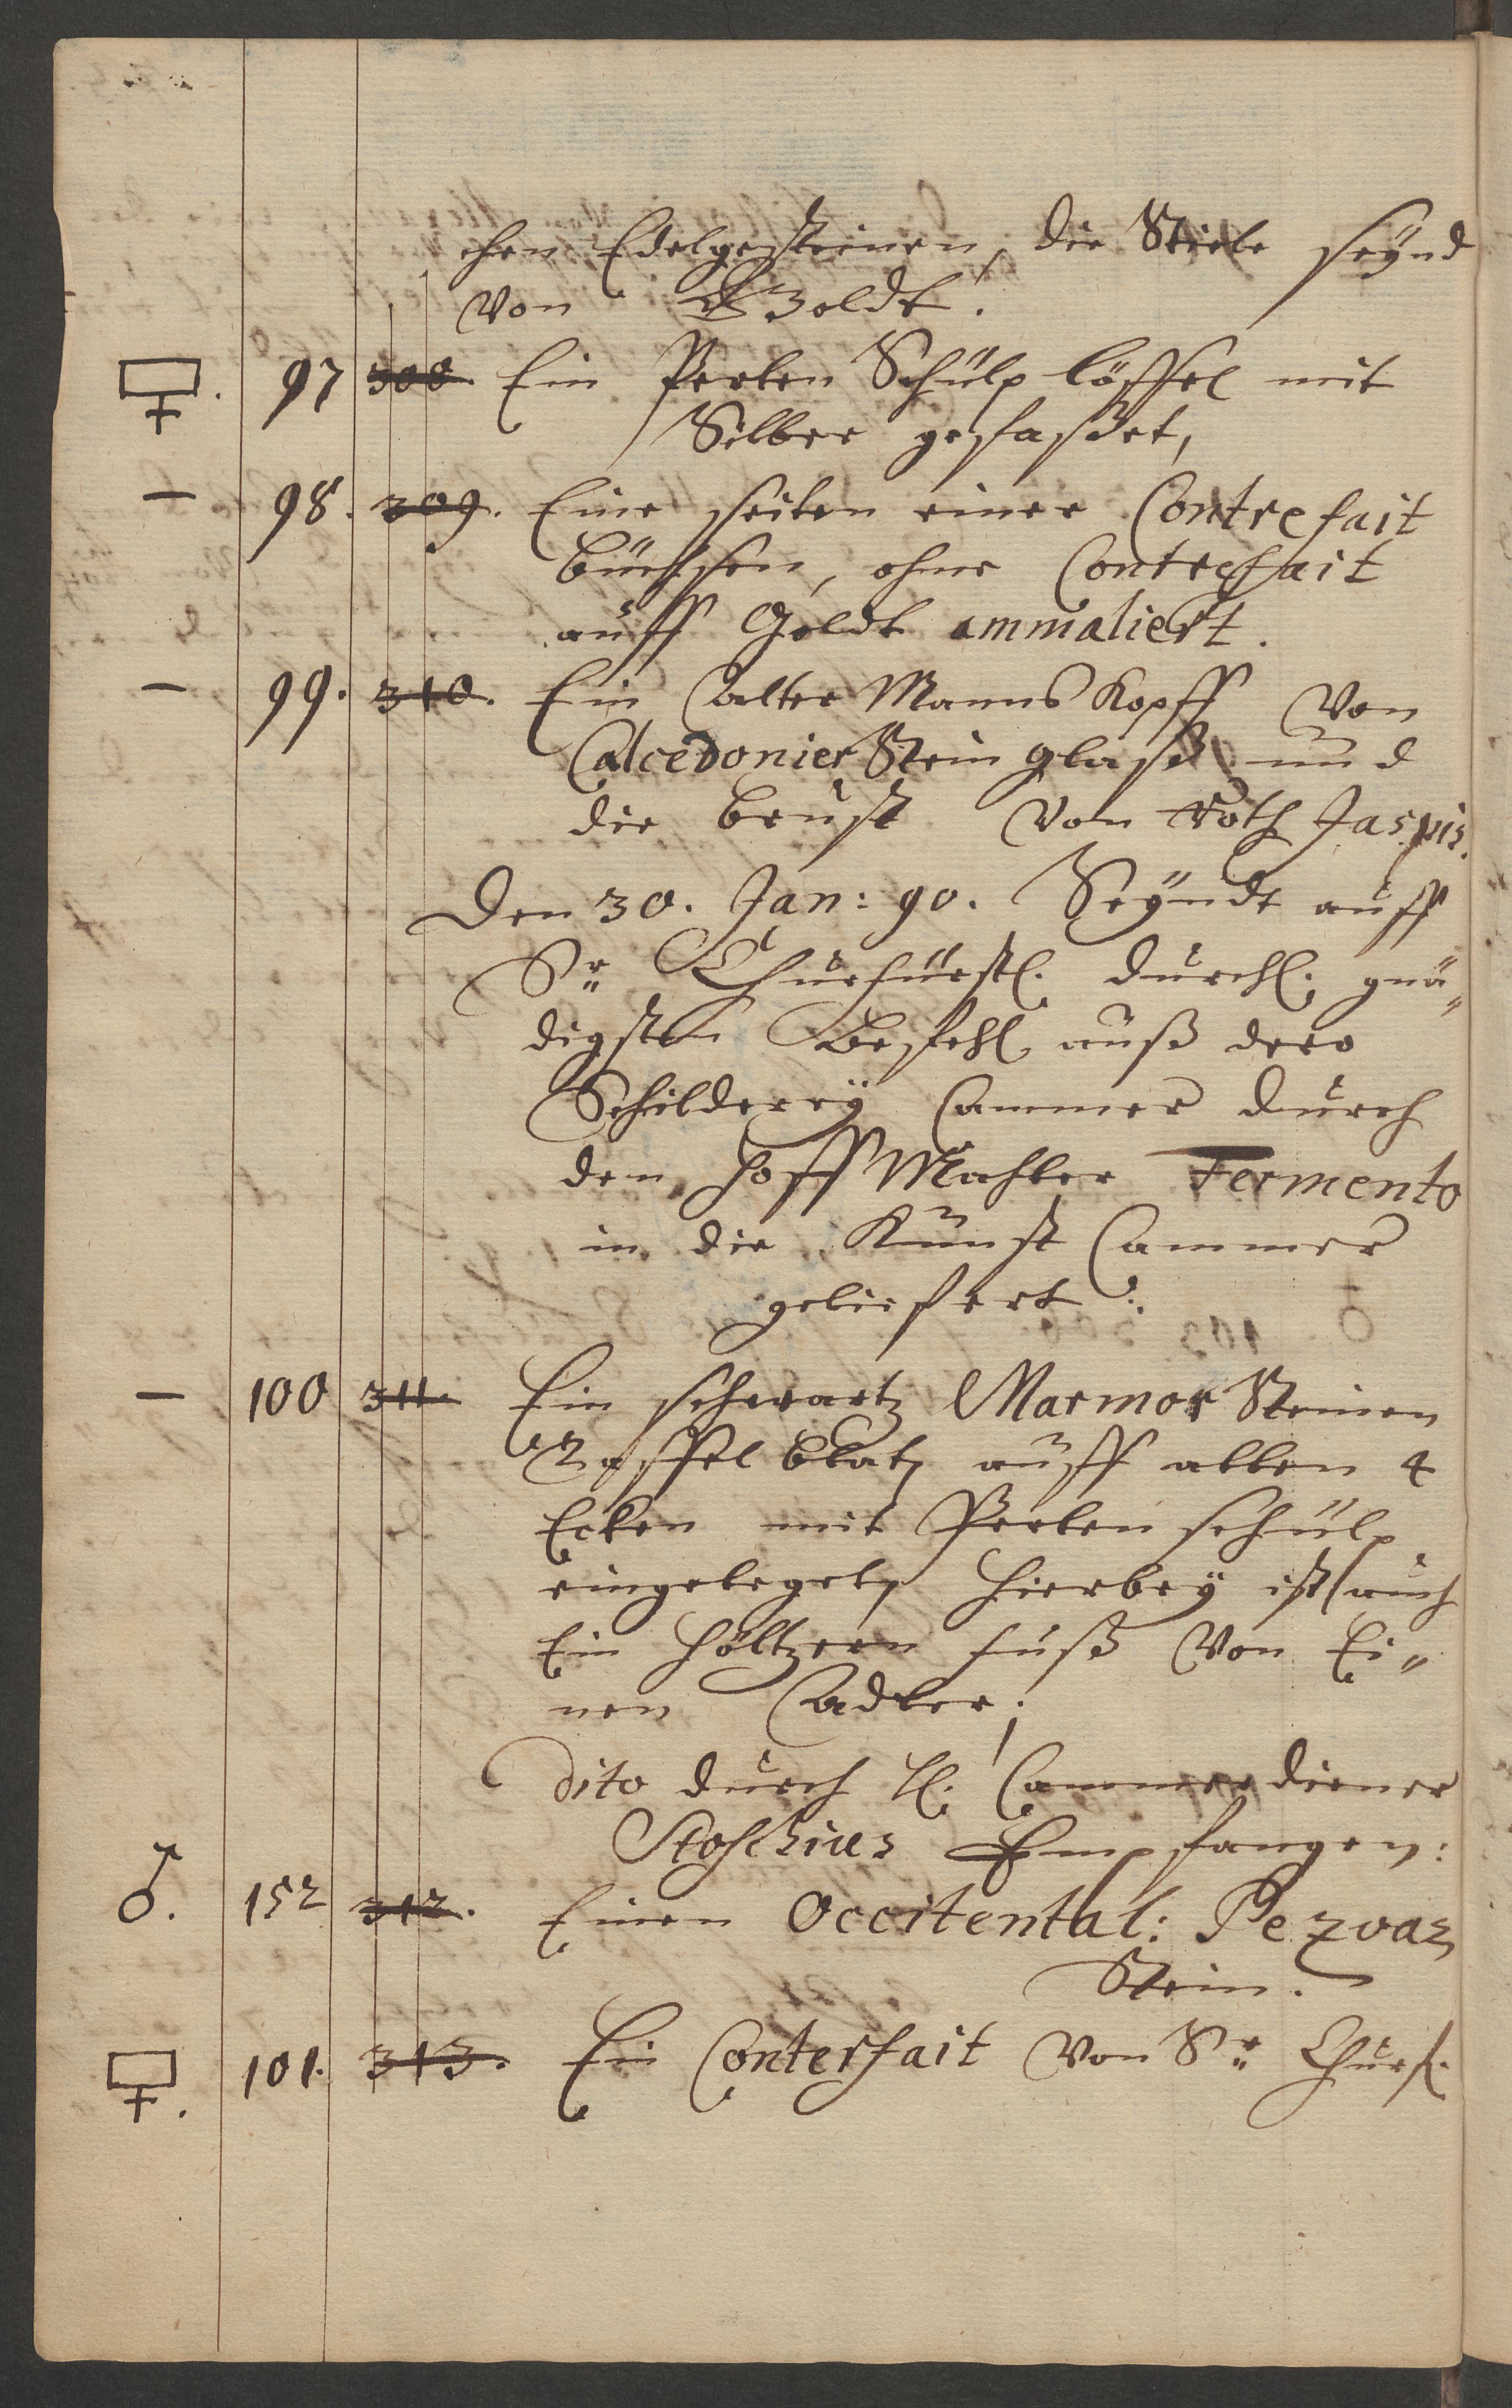 chen Edelgesteinen, die Stiele seynd
von Goldt.
97 308. Ein Perlen Schülp löffel mit
Silber gefasset,
98. 309. Eine seiten einer Contrefait
büchsen, ohne Contrefait
auff Goldt ammaliert.
99. 310. Ein alter Manns Kopff von
Calcedonier Stein glaß und
die brust von roth Jaspis.
Den 30. Jan: 90. Seyndt auff
Sr. Churfürstl. durchl. gnä„
digsten Befehl auß dero
Schilderey Cammer durch
den Hoff Mahler Fermento
in die Kunst Cammer
geliefert:
100 311. Ein schwartz Marmor Steinen
Taffel blatt auff allen 4
Ecken mit Perlen schülp
eingeleget, hierbey ist auch
Ein höltzern fuß von Ei„
nen Adler.
Dito durch H. Cammerdiener
Stoschius Empfangen:
152 312. Einen Occitental: Pezoar
Stein.
101. 313. Ein Conterfait von Sr. Churf.